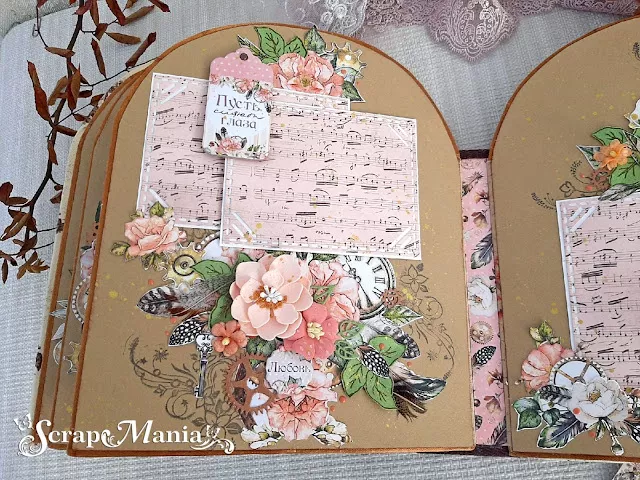 Пусть
сияют
глаза
Любовь
Scrape Mania